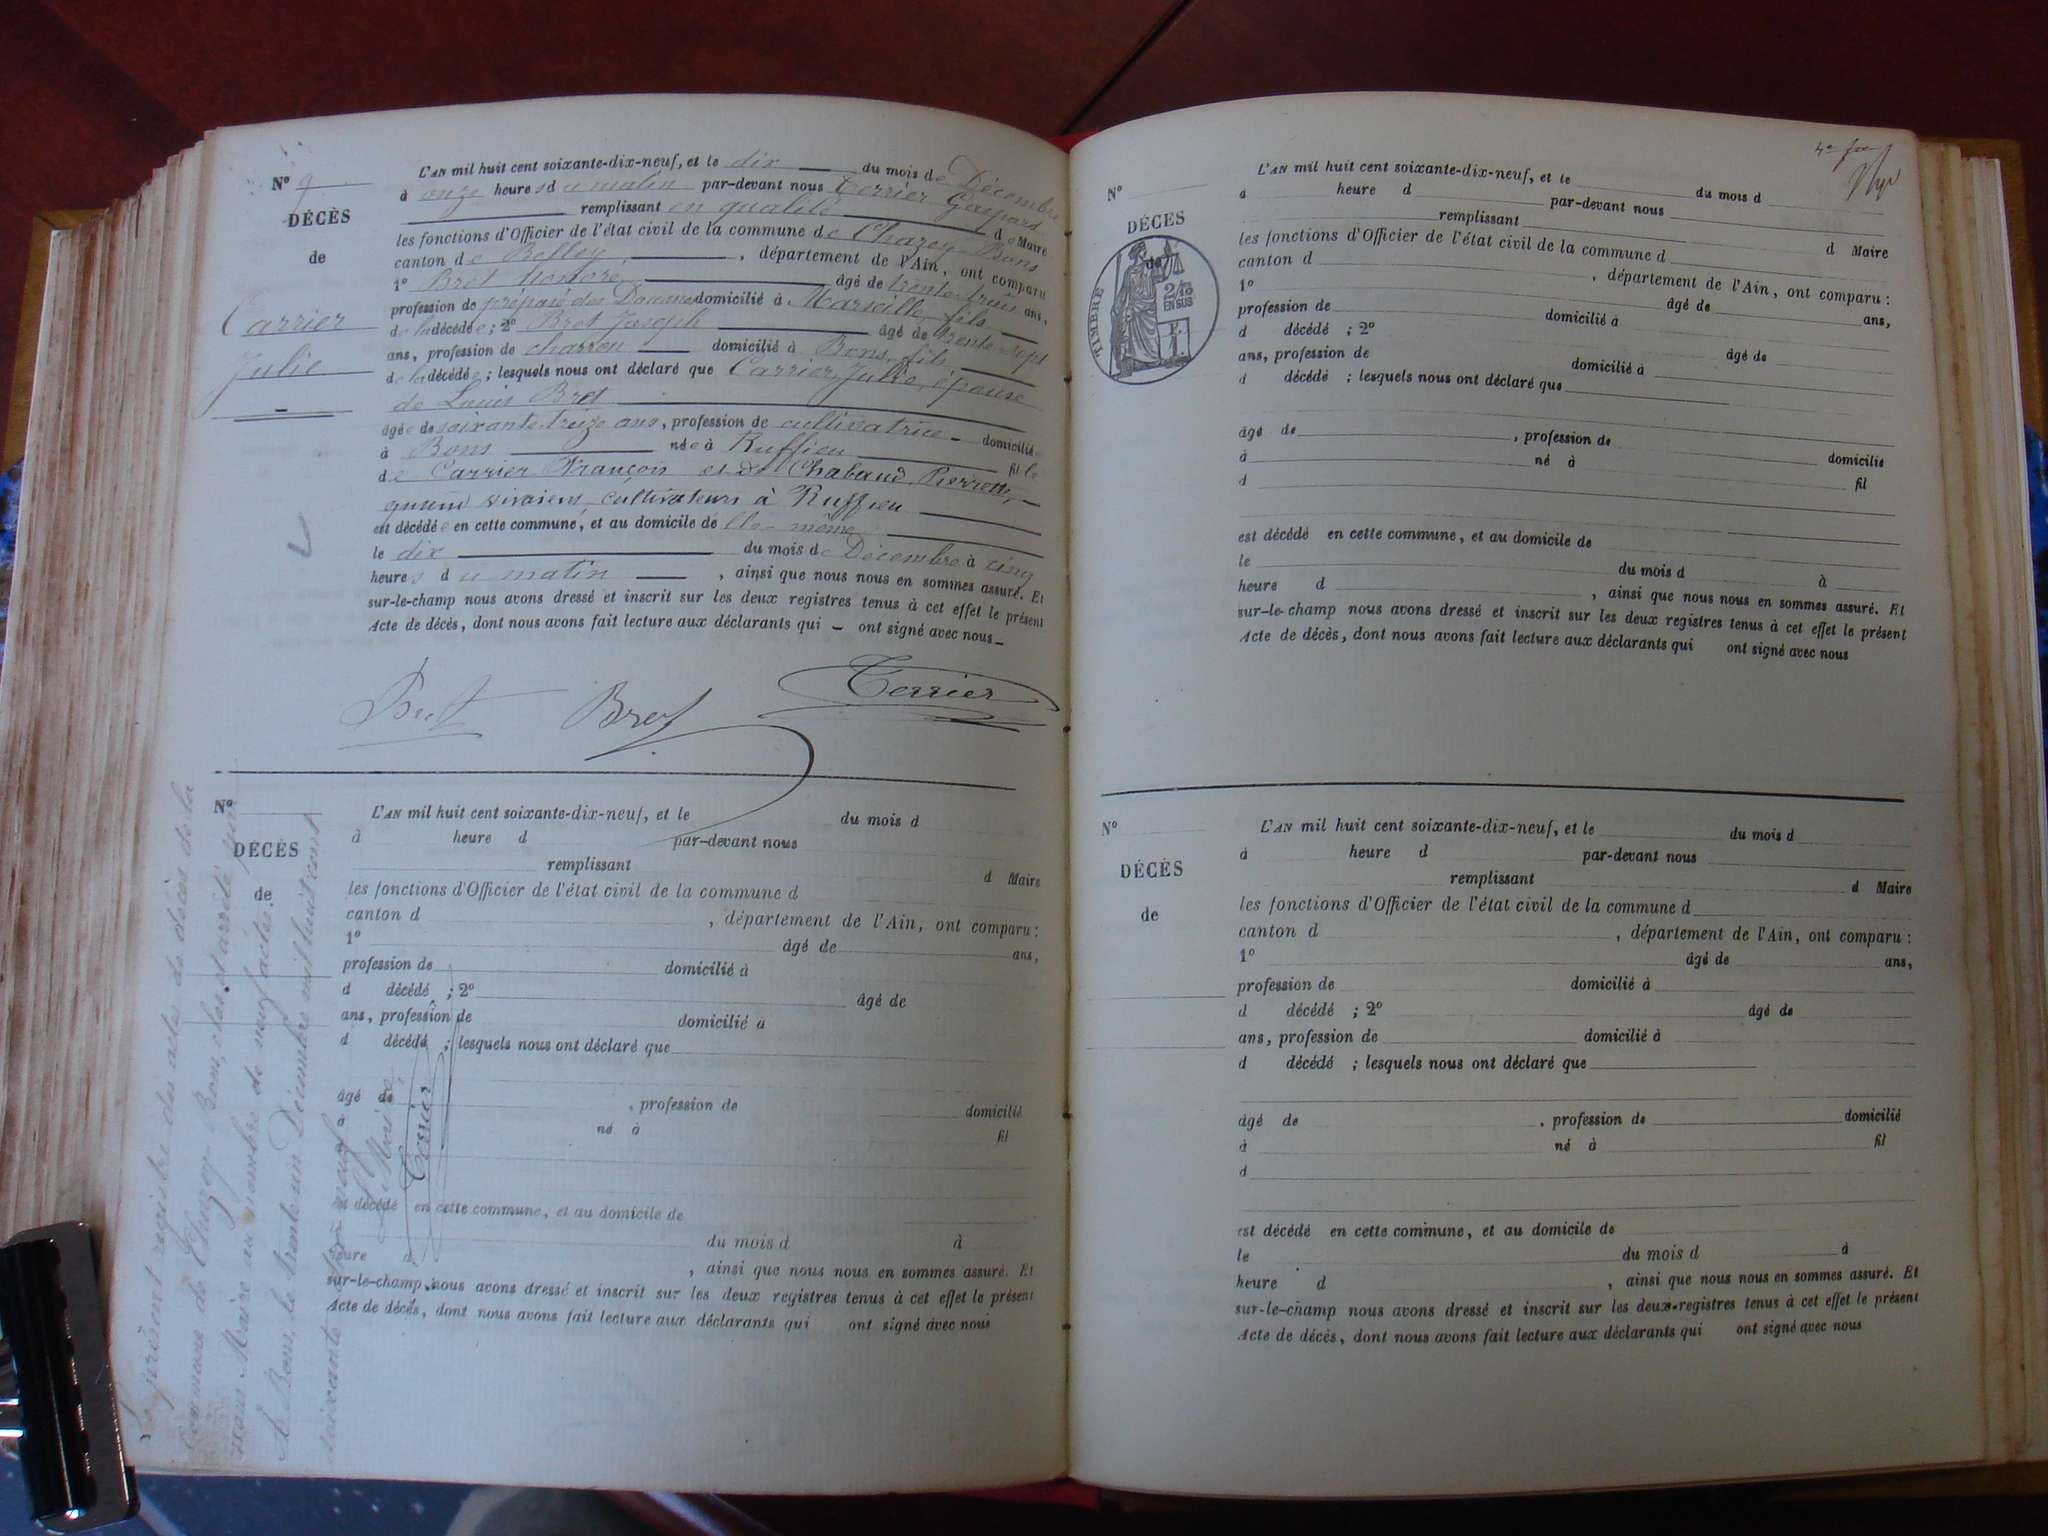 N° 9
DÉCÈS
de
Carrier
Julie
L'AN mil huit cent soixante-dix-neuf, et le dix du mois de Décembre
à onze heures du matin par-devant nous Terrier Gaspard
remplissant en qualité de Maire
les fonctions d'Officier de l'état civil de la commune de Chazey-Bons
canton de Belley, département de l'Ain, ont comparu
1° Bret Honoré âgé de trente-trois ans,
profession de préposé des Douanes domicilié à Marseille, fils
de la décédée ; 2° Bret Joseph âgé de trente-sept
ans, profession de charron domicilié à Bons, fils
de la décédée ; lesquels nous ont déclaré que Carrier, Julie, épouse
de Louis Bret
âgée de soixante-treize ans, profession de cultivatrice domicilié
à Bons née à Ruffieu fille
de Carrier François et de Chabaud Pierrette,
quand vivaient, cultivateurs à Ruffieu
est décédée en cette commune, et au domicile de Elle-même
le dix du mois de Décembre à cinq
heures du matin, ainsi que nous nous en sommes assuré. Et
sur-le-champ nous avons dressé et inscrit sur les deux registres tenus à cet effet le présent
Acte de décès, dont nous avons fait lecture aux déclarants qui ont signé avec nous
Bret Bret Terrier
N°
DÉCÈS
de
L'AN mil huit cent soixante-dix-neuf, et le du mois d
à heure d par-devant nous
remplissant d Maire
les fonctions d'Officier de l'état civil de la commune d
canton d , département de l'Ain, ont comparu :
1° âgé de ans,
profession de domicilié à
d décédé ; 2° âgé de
ans, profession de domicilié à
d décédé ; lesquels nous ont déclaré que
âgé de , profession de domicilié
né à fil
est décédé en cette commune, et au domicile de
du mois d à
heure d , ainsi que nous nous en sommes assuré. Et
sur-le-champ nous avons dressé et inscrit sur les deux registres tenus à cet effet le présent
Acte de décès, dont nous avons fait lecture aux déclarants qui ont signé avec nous
Le présent registre des actes de décès de la
Commune de Chazey-Bons, clos et arrêté par
nous Maire au nombre de neuf actes.
A Bons, le trente un Décembre mil huit cent
soixante dix neuf
Le Maire,
Terrier
4e
N°
DÉCÈS
de
TIMBRE
2/10
EN SUS
L'AN mil huit cent soixante-dix-neuf, et le du mois d
à heure d par-devant nous
remplissant d Maire
les fonctions d'Officier de l'état civil de la commune d
canton d , département de l'Ain, ont comparu :
1° âgé de ans,
profession de domicilié à
d décédé ; 2° âgé de
ans, profession de domicilié à
d décédé ; lesquels nous ont déclaré que
âgé de , profession de domicilié
à né à fil
d
est décédé en cette commune, et au domicile de
le du mois d à
heure d , ainsi que nous nous en sommes assuré. Et
sur-le-champ nous avons dressé et inscrit sur les deux registres tenus à cet effet le présent
Acte de décès, dont nous avons fait lecture aux déclarants qui ont signé avec nous
N°
DÉCÈS
de
L'AN mil huit cent soixante-dix-neuf, et le du mois d
à heure d par-devant nous
remplissant d Maire
les fonctions d'Officier de l'état civil de la commune d
canton d , département de l'Ain, ont comparu :
1° âgé de ans,
profession de domicilié à
d décédé ; 2° âgé de
ans, profession de domicilié à
d décédé ; lesquels nous ont déclaré que
âgé de , profession de domicilié
à né à fil
d
est décédé en cette commune, et au domicile de
le du mois d à
heure d , ainsi que nous nous en sommes assuré. Et
sur-le-champ nous avons dressé et inscrit sur les deux registres tenus à cet effet le présent
Acte de décès, dont nous avons fait lecture aux déclarants qui ont signé avec nous